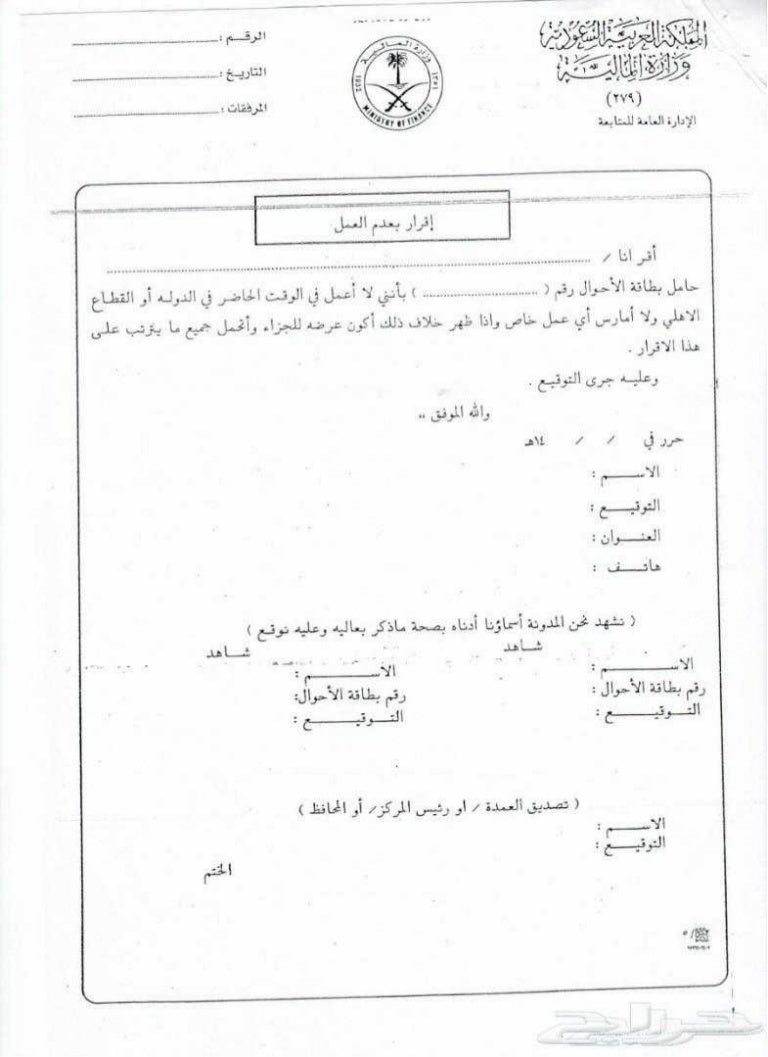 المملكة العربية السعودية
وزارة المالية
(٢٧٩)
الإدارة العامة للمتابعة
وزارة المالية
١٣٥١
1932
MINISTRY OF FINANCE
الرقم :
التاريخ :
المرفقات :
إقرار بعدم العمل
أقر انا /
حامل بطاقة الأحوال رقم ( ) بأنني لا أعمل في الوقت الحاضر في الدوله أو القطاع
الاهلي ولا أمارس أي عمل خاص واذا ظهر خلاف ذلك أكون عرضه للجزاء وأتحمل جميع ما يترتب على
هذا الاقرار .
وعليه جرى التوقيع .
والله الموفق ,,
حرر في / / ١٤هـ
الاســـم :
التوقيـــع :
العنـــوان :
هاتـــف :
( نشهد نحن المدونة أسماؤنا أدناه بصحة ماذكر بعاليه وعليه نوقع )
شـاهد
شـاهد
الاســـم :
الاســـم :
رقم بطاقة الأحوال :
رقم بطاقة الأحوال:
التـوقيـــع :
التـوقيـــع :
( تصديق العمدة / او رئيس المركز/ أو المحافظ )
الاســـم :
التوقيـــع :
الختم
حراج